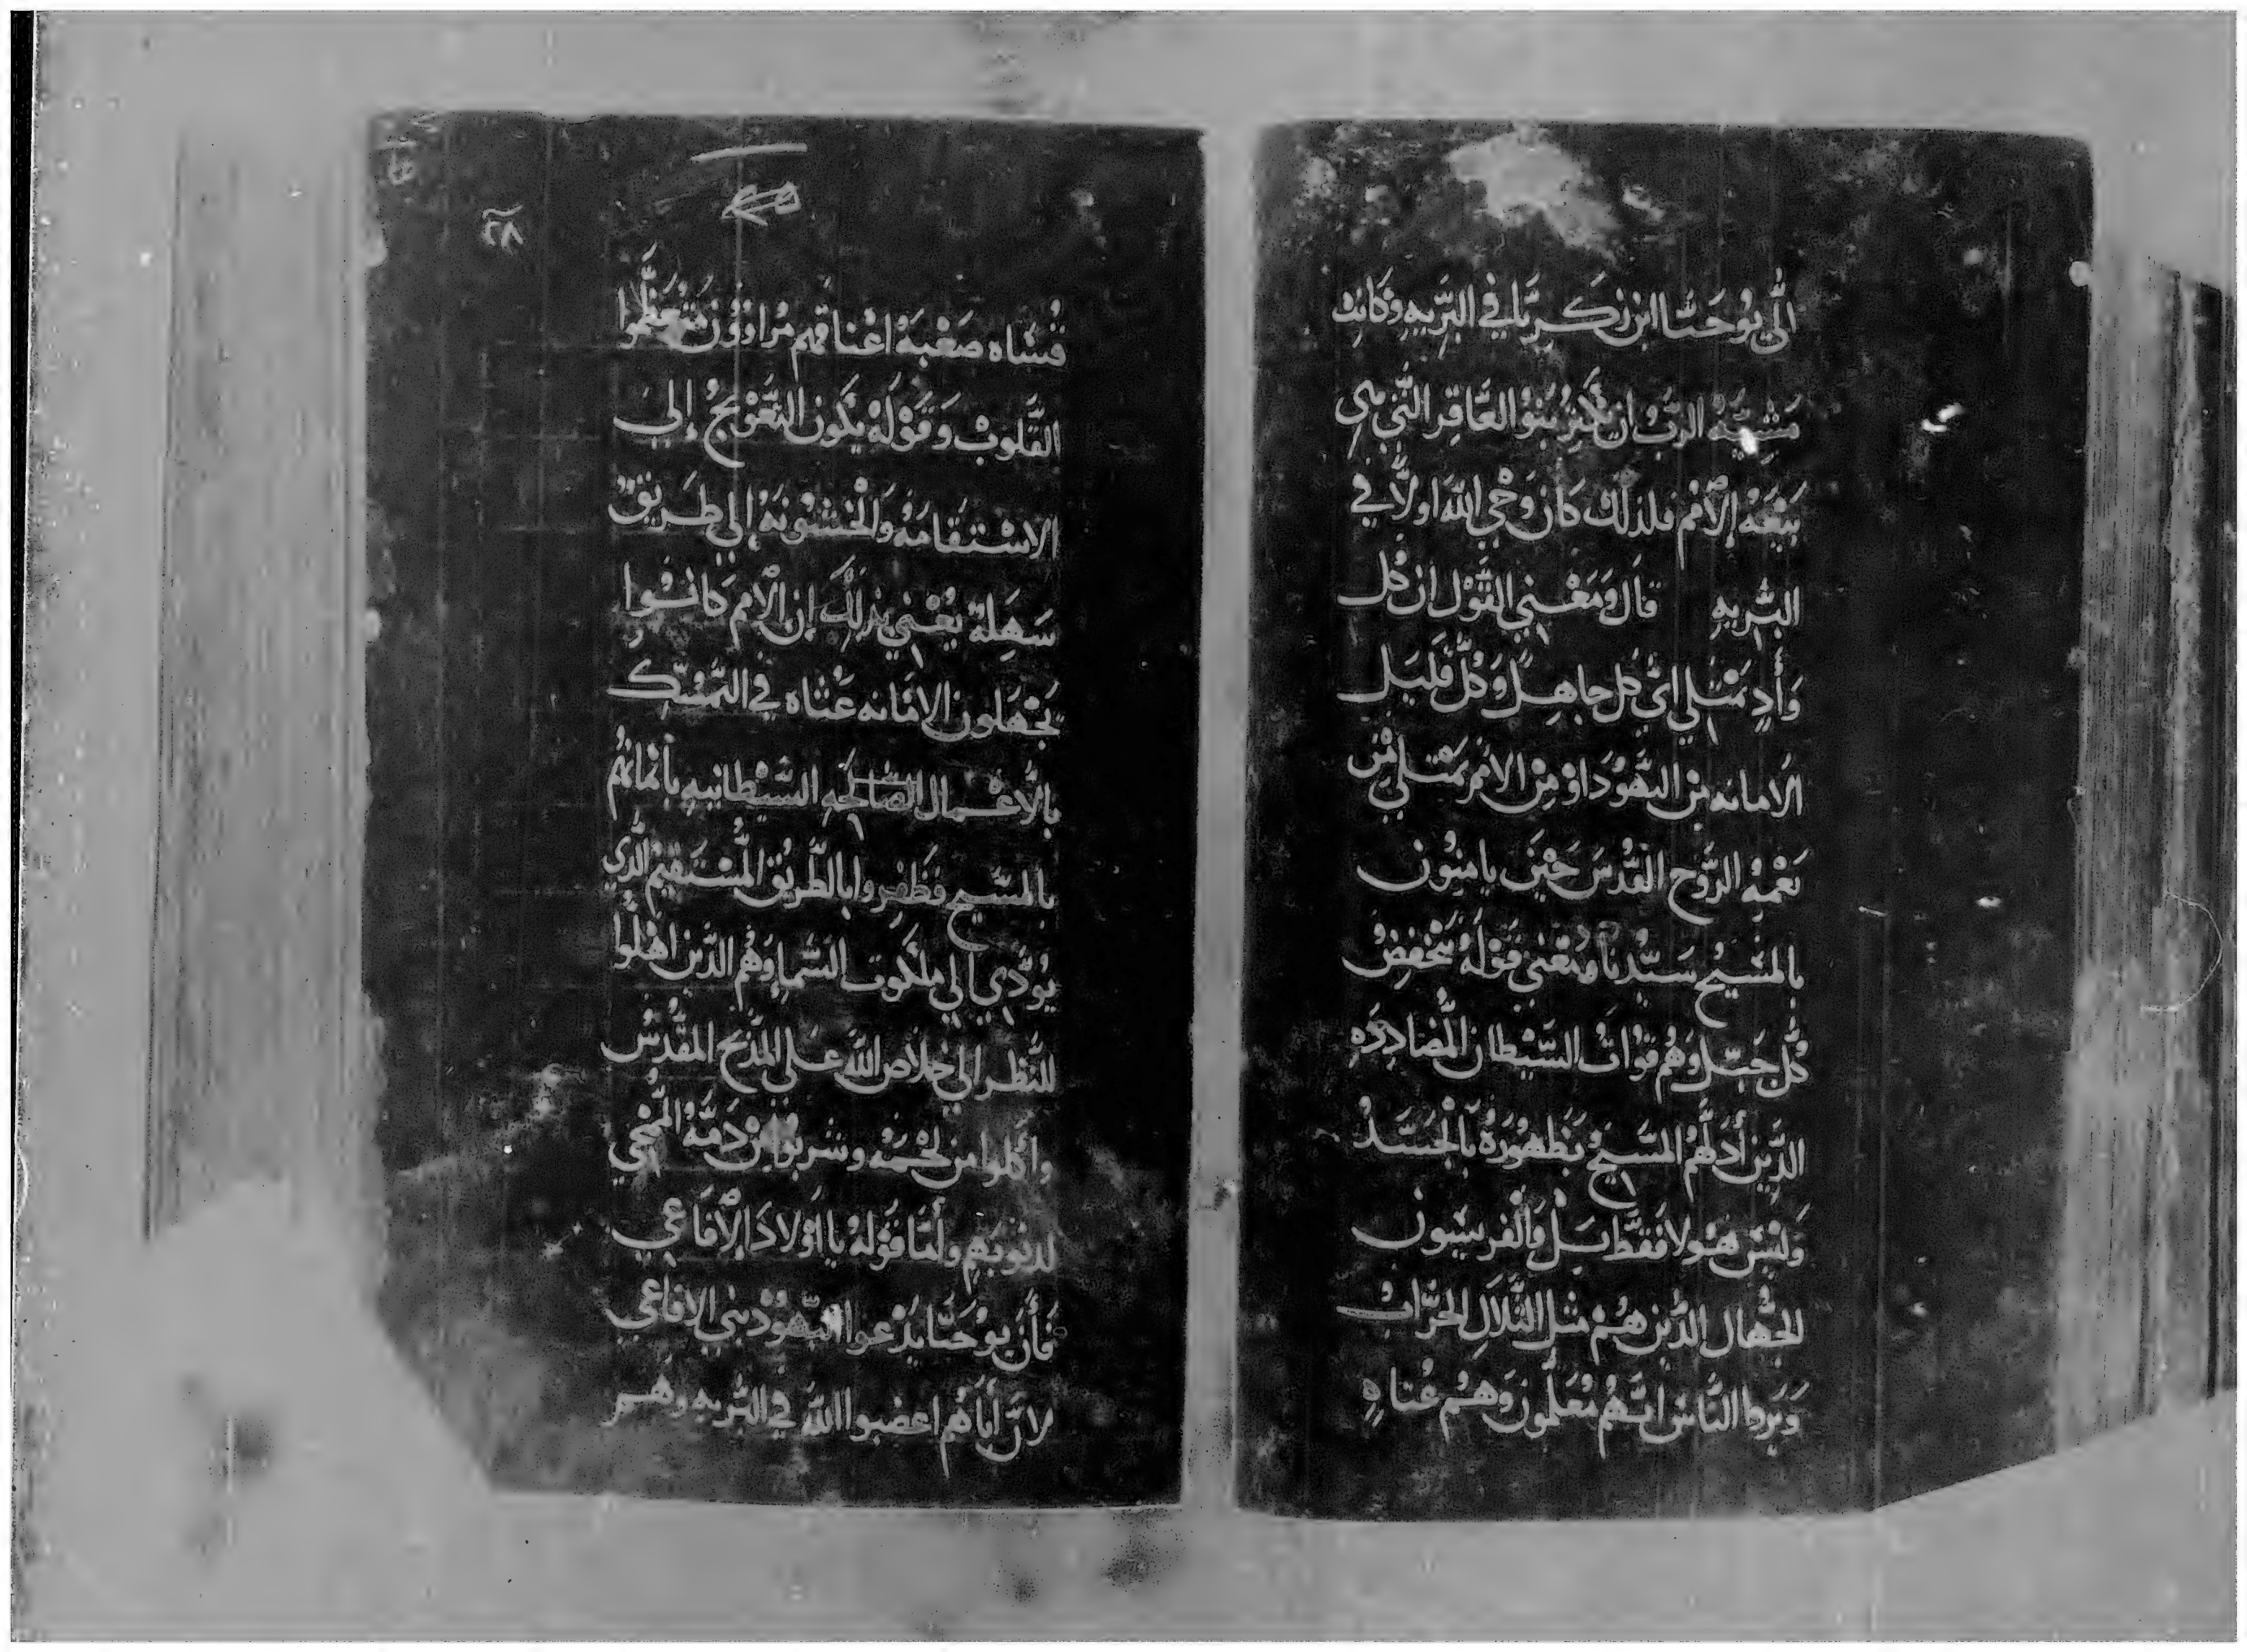 الي يوُحَنا ابن زكَريّا في البَريه وكانت
مَشيّة الربّ ان تكثر بنوُ العَاقِر التي هي
بيَعَة الاُمم فلذلك كان وَحْي الله اولاً في
البَريهِ قال وَمَعْني القوْل ان كُل
وَادٍ يمتلي اي كل جاهِل وَكُل قليل
الامانه من اليَهوُد اوْ مِن الامم يمتلي مْن
نعْمة الروُح القدُس حَيْن يامنوُن
بالمسَيح سَيّدنا ومَعْني قوْلهُ ينخفض
كُل جَبَل وَهُم قوُات الشيْطان المُضادِدَه
الدَين أدَلهُم المسَيح بظهُورهُ بالجَسَد
وَليْسَ هَولا فقط بَل وَالفريسَيوُن
الجُهال الدين هُمْ مثل التلال الخرَاب
وَيَروا النَاس انهُم مُعَلموُن وَهُم عُتاه
٢٨
قسَاه صَعْبَة اعْناقهم
القلوبْ وَقوْلهْ يكون التَعْويجُ إلي
الاسْتقامَهْ وَالخشوُنهْ إلي طريق
سَهِلة يَعْني بذلك إن الأمم كانوُا
يَجْهَلون الامَانه عُتاه في التمسّك
بالأعْمال الشيْطانيهِ بأيمانهُم
بالمسَيح فظفروا بالطريْق المسْتقيْم الذي
يوُدّي الي ملكوُت السَما وَهُم الدَين اهْلوا
للنظر الي خلاص الله عَلي المذبح المقدسْ
واكلوا من لحْمهُ وشربوُا مْن دَمهُ المُمْحي
لدنوُبهم وأمَا قوْلهُ يا اوْلادَ الأفاعي
فأن يوُحَنا يدْعوا اليَهوُد بني الافاعي
لانّ أباهُم اغضبوا الله في البَريه وَهم